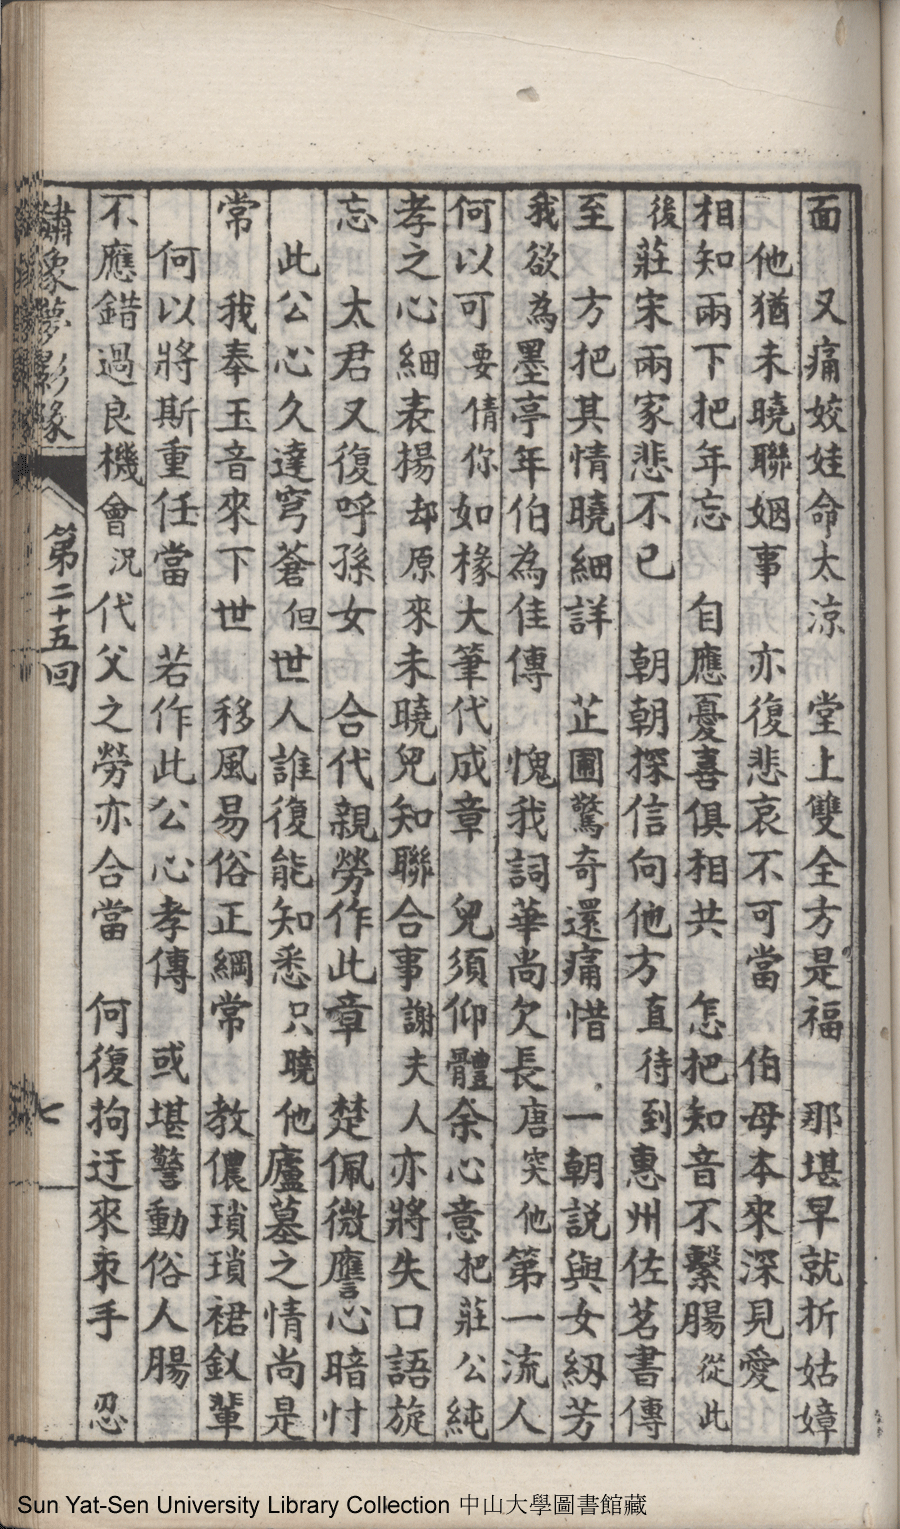 面　又痛姣娃命太涼　堂上雙全方是福　那堪早就折姑嫜
他猶未曉聯姻事　亦復悲哀不可當　伯母本來深見愛
相知兩下把年忘　自應憂喜俱相共　怎把知音不繫腸　從此
後莊宋兩家悲不已　朝朝探信向他方　直待到惠州佐茗書傳
至　方把其情曉細詳　芷圃驚奇還痛惜　一朝說與女紉芳
我欲為墨亭年伯為佳傳　愧我詞華尚欠長　唐突他第一流人
何以可　要倩你如椽大筆代成章　兒須仰體余心意　把莊公純
孝之心細表楊　却原來未曉兒知聯合事　謝夫人亦將失口語旋
忘　太君又復呼孫女　合代親勞作此章　楚佩微應心暗忖
此公心久達穹蒼　但世人誰復能知悉　只曉他廬墓之情尚是
常　我奉玉音來下世　移風易俗正綱常　教儂瑣瑣裙釵輩
何以將斯重任當　若作此公心孝傳　或堪警動俗人腸
不應錯過良機會　況代父之勞亦合當　何復拘迂來束手　忍
繡像夢影緣　第二十五回　七
Sun Yat-Sen University Library Collection 中山大學圖書館藏